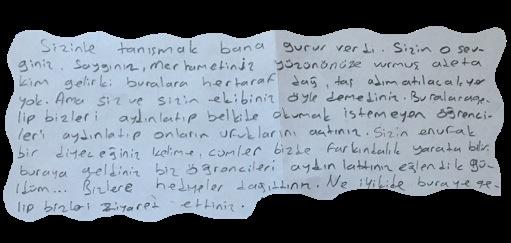 Sizinle tanışmak bana gurur verdi. Sizin o sev-
giniz, saygınız, merhametiniz yüzününüze vurmuş adeta
kim gelirki buralara hertaraf dağ, taş adım atılacak yer
yok. Ama siz ve sizin ekibiniz öyle demediniz. Buralara ge-
lip bizleri aydınlatıp belkide okumak istemeyen öğrenci-
leri aydınlatıp onların ufuklarını açtınız. Sizin en ufak
bir diyeceğiniz kelime, cümler bizde farkındalık yarata bilir.
buraya geldiniz biz öğrencileri aydınlattınız eğlendik gü-
ldüm... Bizlere hediyeler dağıttınız. Ne iyikide buraya ge-
lip bizleri ziyaret ettiniz.